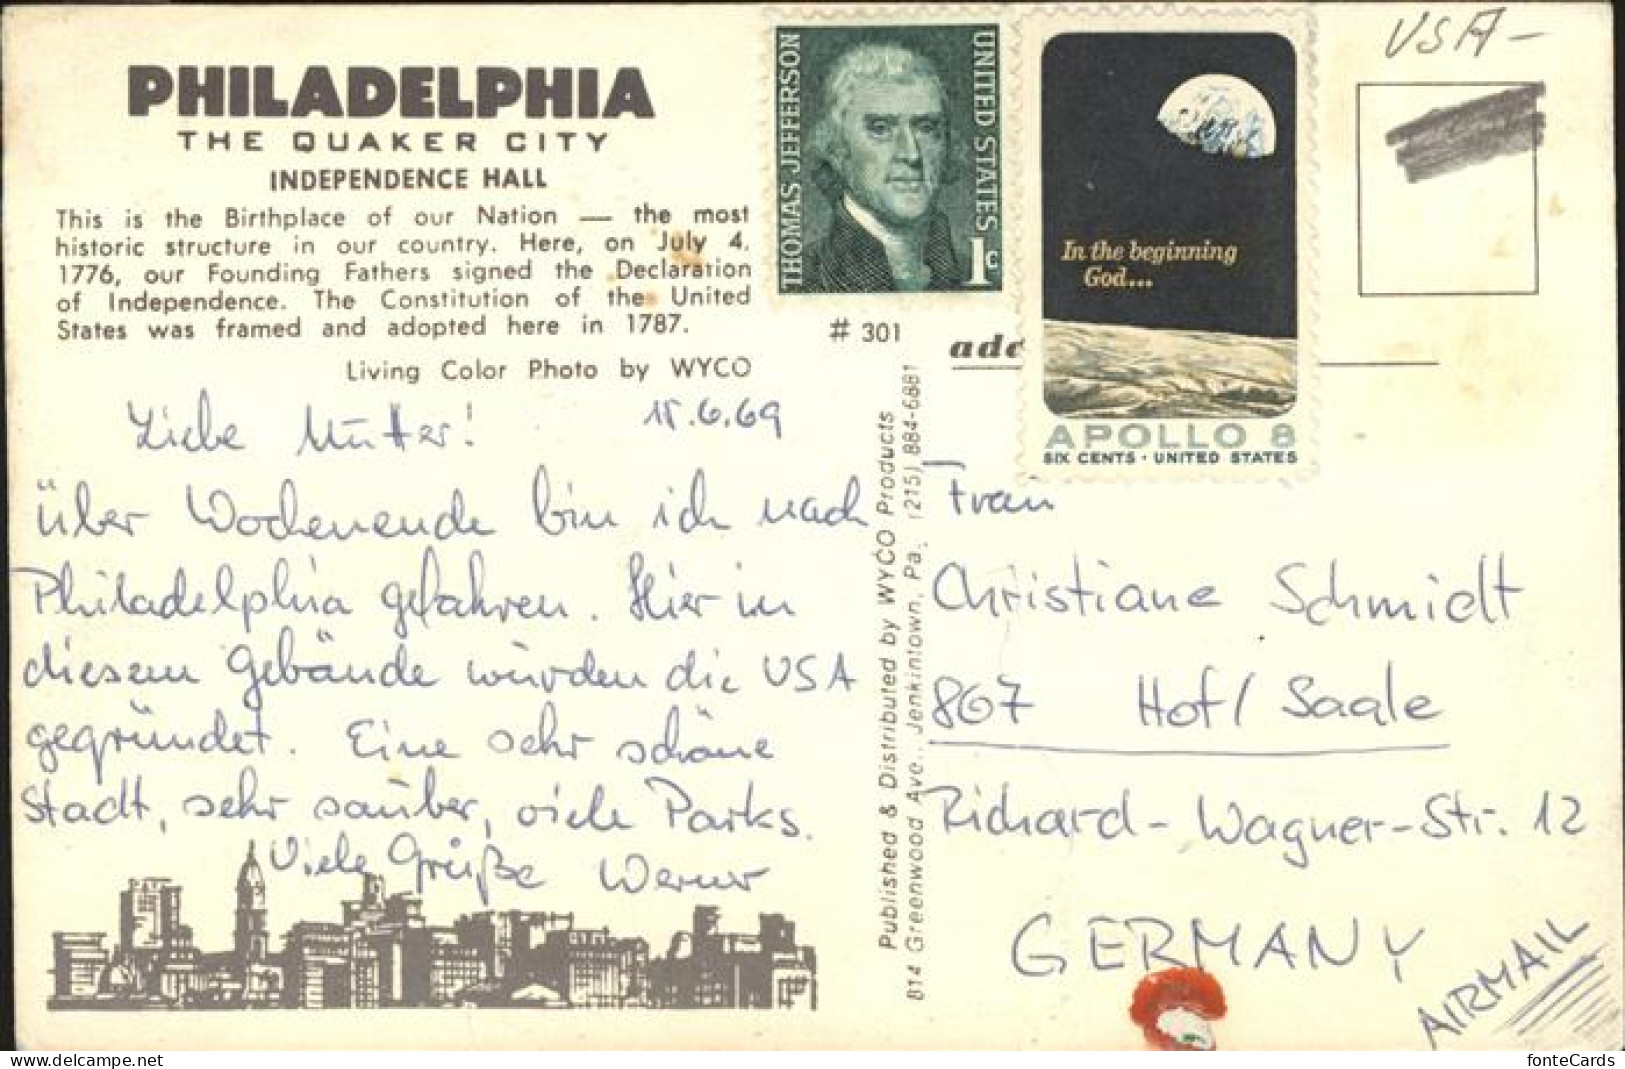 USA-
PHILADELPHIA
THE QUAKER CITY
INDEPENDENCE HALL
This is the Birthplace of our Nation — the most
historic structure in our country. Here, on July 4,
1776, our Founding Fathers signed the Declaration
of Independence. The Constitution of the United
States was framed and adopted here in 1787.
Living Color Photo by WYCO
THOMAS JEFFERSON
UNITED STATES
1c
In the beginning
God...
APOLLO 8
SIX CENTS · UNITED STATES
# 301
Liebe Mutter! .6.69
über Wochenende bin ich nach
Philadelphia gefahren. Hier in
diesem Gebäude wurden die USA
gegründet. Eine sehr schöne
Stadt, sehr sauber, viele Parks.
Viele Grüße Werner
Published & Distributed by WYCO Products
814 Greenwood Ave., Jenkintown, Pa. (215) 884-6881
Frau
Christiane Schmidt
867 Hof/Saale
Richard-Wagner-Str. 12
GERMANY
AIRMAIL
https://www.delcampe.net
fonteCards